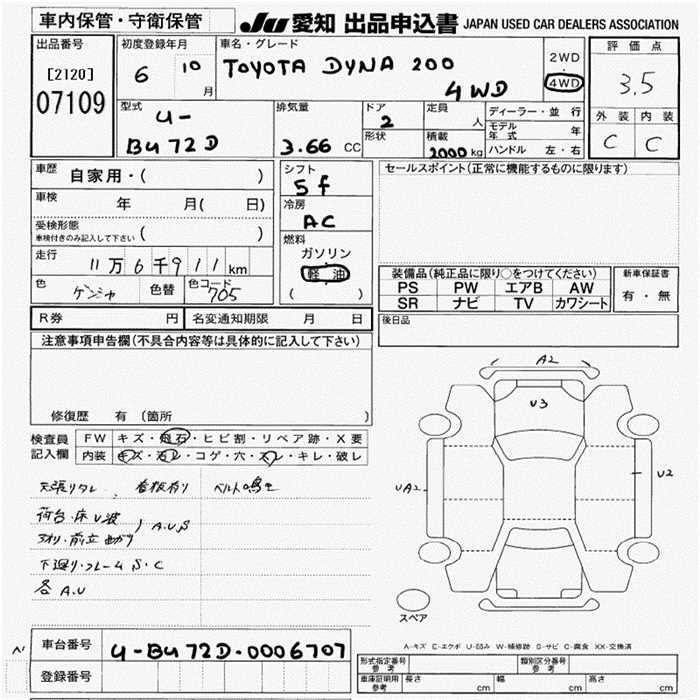 車内保管・守衛保管
JU 愛知 出品申込書 JAPAN USED CAR DEALERS ASSOCIATION
出品番号
[2120]
07109
初度登録年月
6 10 月
車名・グレード
TOYOTA DYNA 200
4WD
2WD
・
4WD
評価点
3.5
外装 内装
C C
型式
U-
BU72D
排気量
3.66 CC
ドア
2
形状
定員
人
積載
2000 kg
ディーラー・並行
モデル年式 年
ハンドル 左・右
車歴
自家用・( )
車検
年 月( 日)
受検形態
車検付きのみ記入して下さい ( )
走行
11万6千911km
色
色替
色コード
705
シフト
5f
冷房
AC
燃料
ガソリン
・
軽油
( )
セールスポイント(正常に機能するものに限ります)
装備品(純正品に限り○をつけてください)
PS PW エアB AW
SR ナビ TV カワシート
新車保証書
有・無
後日品
R券 円 名変通知期限 月 日
注意事項申告欄(不具合内容等は具体的に記入して下さい)
修復歴 有 (箇所 )
検査員
記入欄
FW キズ・飛石・ヒビ割・リペア跡・X要
内装 キズ・汚レ・コゲ・穴・スレ・キレ・破レ
天張りタレ、 看板有り ベルト鳴き
荷台・床U波
アオリ・前立曲がり
A.U.S
下廻り・フレームS・C
各A.U
A2
U3
UA2
U2
スペア
A-キズ E-エクボ U-凹み W-補修跡 S-サビ C-腐食 XX-交換済
車台番号
U-BU72D-0006707
登録番号
型式指定番号
参考
類別区分番号
参考
車庫証明用
参考
長さ cm 幅 cm 高さ cm